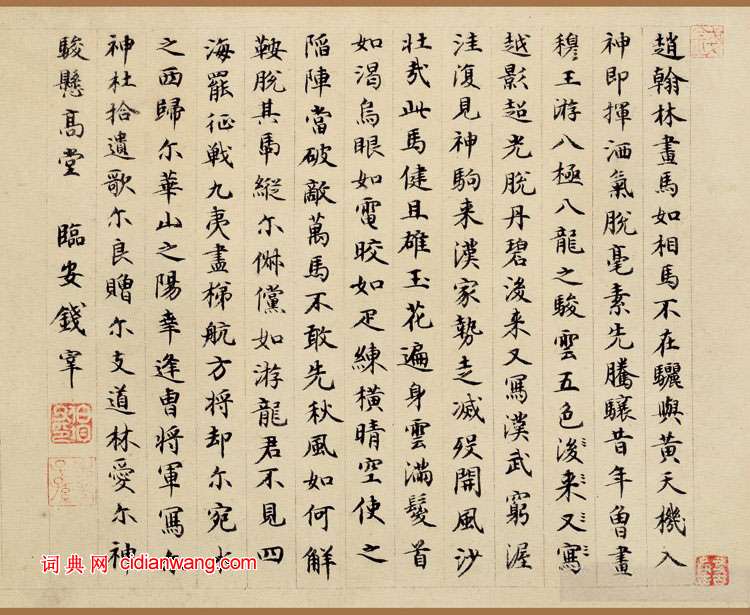 趙翰林畫馬如相馬不在驪與黃天機入
神即揮洒氣脫毫素先騰驤昔年曾畫
穆王游八極八龍之駿雲五色後来又寫
越影超光脫丹碧後来又寫漢武窮渥
洼復見神駒来漢家勢走滅沒開風沙
壯哉此馬健且雄玉花遍身雲滿鬉首
如渴烏眼如電皎如疋練橫晴空使之
陷陣當破敵萬馬不敢先秋風如何解
鞍脫其馬縱尔倜儻如游龍君不見四
海罷征戦九夷盡梯航方将却尔宛
之西歸尔華山之陽幸逢曹将軍寫尔
神杜拾遺歌尔良贈尔支道林愛尔神
駿懸高堂 臨安錢宰
词典网 cidianwang.com